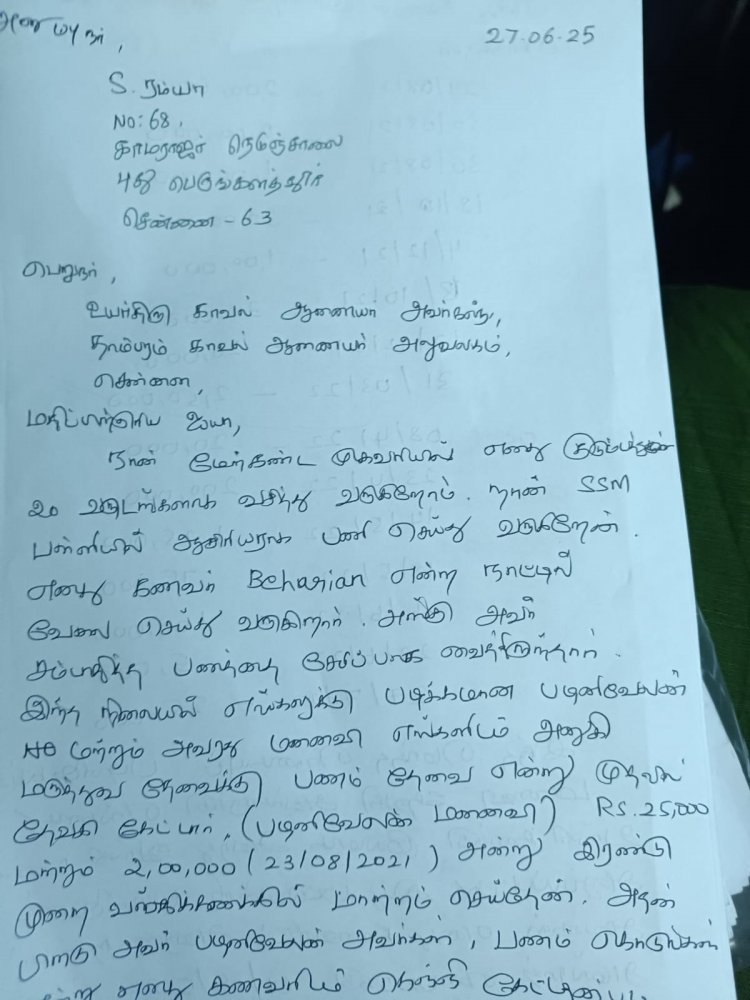 அனுப்புநர்,
27.06.25
S. ரம்யா
NO: 68,
காமராஜர் நெடுஞ்சாலை
புது பெருங்களத்தூர்
சென்னை - 63
பெறுநர்,
உயர்திரு காவல் ஆணையர் அவர்கள்,
தாம்பரம் காவல் ஆணையர் அலுவலகம்,
சென்னை,
மதிப்பிற்குரிய ஐயா,
நான் மேற்கண்ட முகவரியில் எனது குடும்பத்துடன்
20 வருடங்களாக வசித்து வருகிறோம். நான் SSM
பள்ளியில் ஆசிரியராக பணி செய்து வருகிறேன்.
எனது கணவர் Beharian என்ற நாட்டில்
வேலை செய்து வருகிறார். அங்கு அவர்
சம்பாதித்த பணத்தை சேமிப்பாக வைத்திருந்தார்.
இந்த நிலையில் எங்களுக்கு படிக்கமான பழனிவேலன்
மற்றும் அவரது மனைவி எங்களிடம் அணுகி
மருத்துவ தேவைக்கு பணம் தேவை என்று முதலில்
தேவகி கேட்டார், (பழனிவேலன் மனைவி) RS. 25,000
மற்றும் 2,00,000 (23/08/2021) அன்று இரண்டு
முறை வங்கிக்கணக்கில் மாற்றம் செய்தேன். அதன்
பிறகு அவர் பழனிவேலன் அவர்கள், பணம் கொடுங்கள்
என்று எனது கணவரிடம் கெஞ்சி